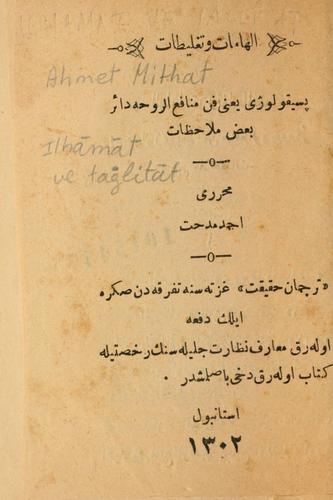 الهامات و تغليطات
Ahmet Mithat
پسيقولوژى يعنى فن منافع الروحه دائر
بعض ملاحظات
Ilhāmāt
ve taġlitāt
محررى
احمد مدحت
«ترجمان حقيقت» غزته سنه تفرقه دن صكره
ايلك دفعه
اوله رق معارف نظارت جليله سنك رخصتيله
كتاب اوله رق دخى باصلمشدر .
استانبول
١٣٠٢